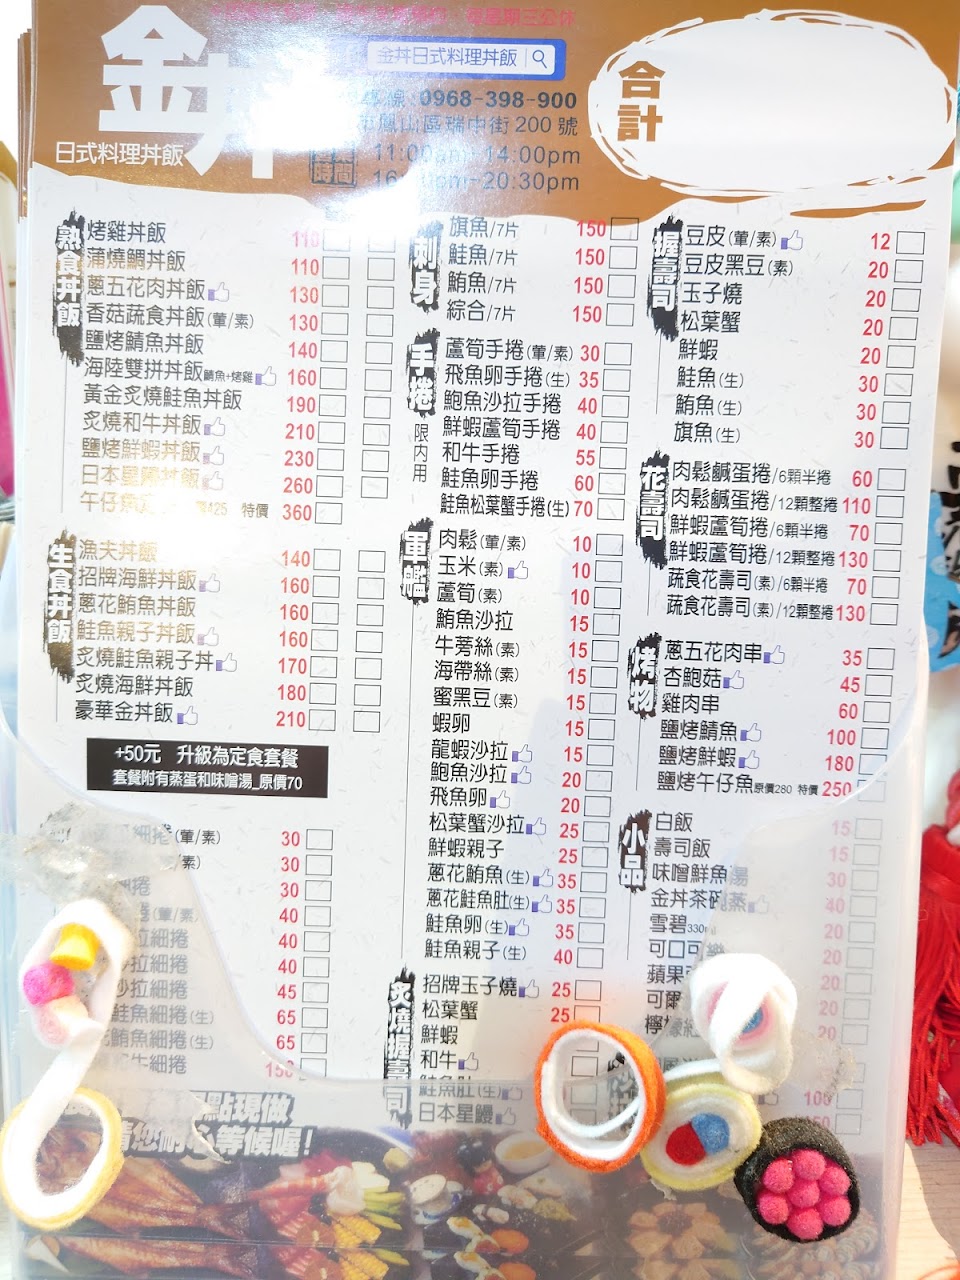 金丼
日式料理丼飯
金丼日式料理丼飯
0968-398-900
鳳山區瑞中街200號
時間
11:00am-14:00pm
-20:30pm
合計
熟食丼飯
烤雞丼飯 110
蒲燒鯛丼飯 110
蔥五花肉丼飯 130
香菇蔬食丼飯(葷/素) 130
鹽烤鯖魚丼飯 140
海陸雙拼丼飯鯖魚+烤雞 160
黃金炙燒鮭魚丼飯 190
炙燒和牛丼飯 210
鹽烤鮮蝦丼飯 230
日本星鰻丼飯 260
午仔魚 425 特價 360
生食丼飯
漁夫丼飯 140
招牌海鮮丼飯 160
蔥花鮪魚丼飯 160
鮭魚親子丼飯 160
炙燒鮭魚親子丼 170
炙燒海鮮丼飯 180
豪華金丼飯 210
+50元 升級為定食套餐
套餐附有蒸蛋和味噌湯_原價70
細捲(葷/素) 30
素) 30
細捲 30
(葷/素) 40
拉細捲 40
沙拉細捲 40
沙拉細捲 45
鮭魚細捲(生) 65
鮪魚細捲(生) 65
牛細捲 150
點現做
請您耐心等候喔!
刺身
旗魚/7片 150
鮭魚/7片 150
鮪魚/7片 150
綜合/7片 150
手捲
限內用
蘆筍手捲(葷/素) 30
飛魚卵手捲(生) 35
鮑魚沙拉手捲 40
鮮蝦蘆筍手捲 40
和牛手捲 55
鮭魚卵手捲 60
鮭魚松葉蟹手捲(生) 70
軍艦
肉鬆(葷/素) 10
玉米(素) 10
蘆筍(素) 10
鮪魚沙拉 15
牛蒡絲(素) 15
海帶絲(素) 15
蜜黑豆(素) 15
蝦卵 15
龍蝦沙拉 15
鮑魚沙拉 20
飛魚卵 20
松葉蟹沙拉 25
鮮蝦親子 25
蔥花鮪魚(生) 35
蔥花鮭魚肚(生) 35
鮭魚卵(生) 35
鮭魚親子(生) 40
炙燒握壽司
招牌玉子燒 25
松葉蟹 25
鮮蝦
和牛
鮭魚肚(生)
日本星鰻
握壽司
豆皮(葷/素) 12
豆皮黑豆(素) 20
玉子燒 20
松葉蟹 20
鮮蝦 20
鮭魚(生) 30
鮪魚(生) 30
旗魚(生) 30
花壽司
肉鬆鹹蛋捲/6顆半捲 60
肉鬆鹹蛋捲/12顆整捲 110
鮮蝦蘆筍捲/6顆半捲 70
鮮蝦蘆筍捲/12顆整捲 130
蔬食花壽司(素)/6顆半捲 70
蔬食花壽司(素)/12顆整捲 130
烤物
蔥五花肉串 35
杏鮑菇 45
雞肉串 60
鹽烤鯖魚 100
鹽烤鮮蝦 180
鹽烤午仔魚原價280 特價 250
小品
白飯 15
壽司飯 15
味噌鮮魚湯 30
金丼茶碗蒸 40
雪碧330ml 20
可口可樂 20
蘋果 20
可爾 20
檸檬紅 20
100